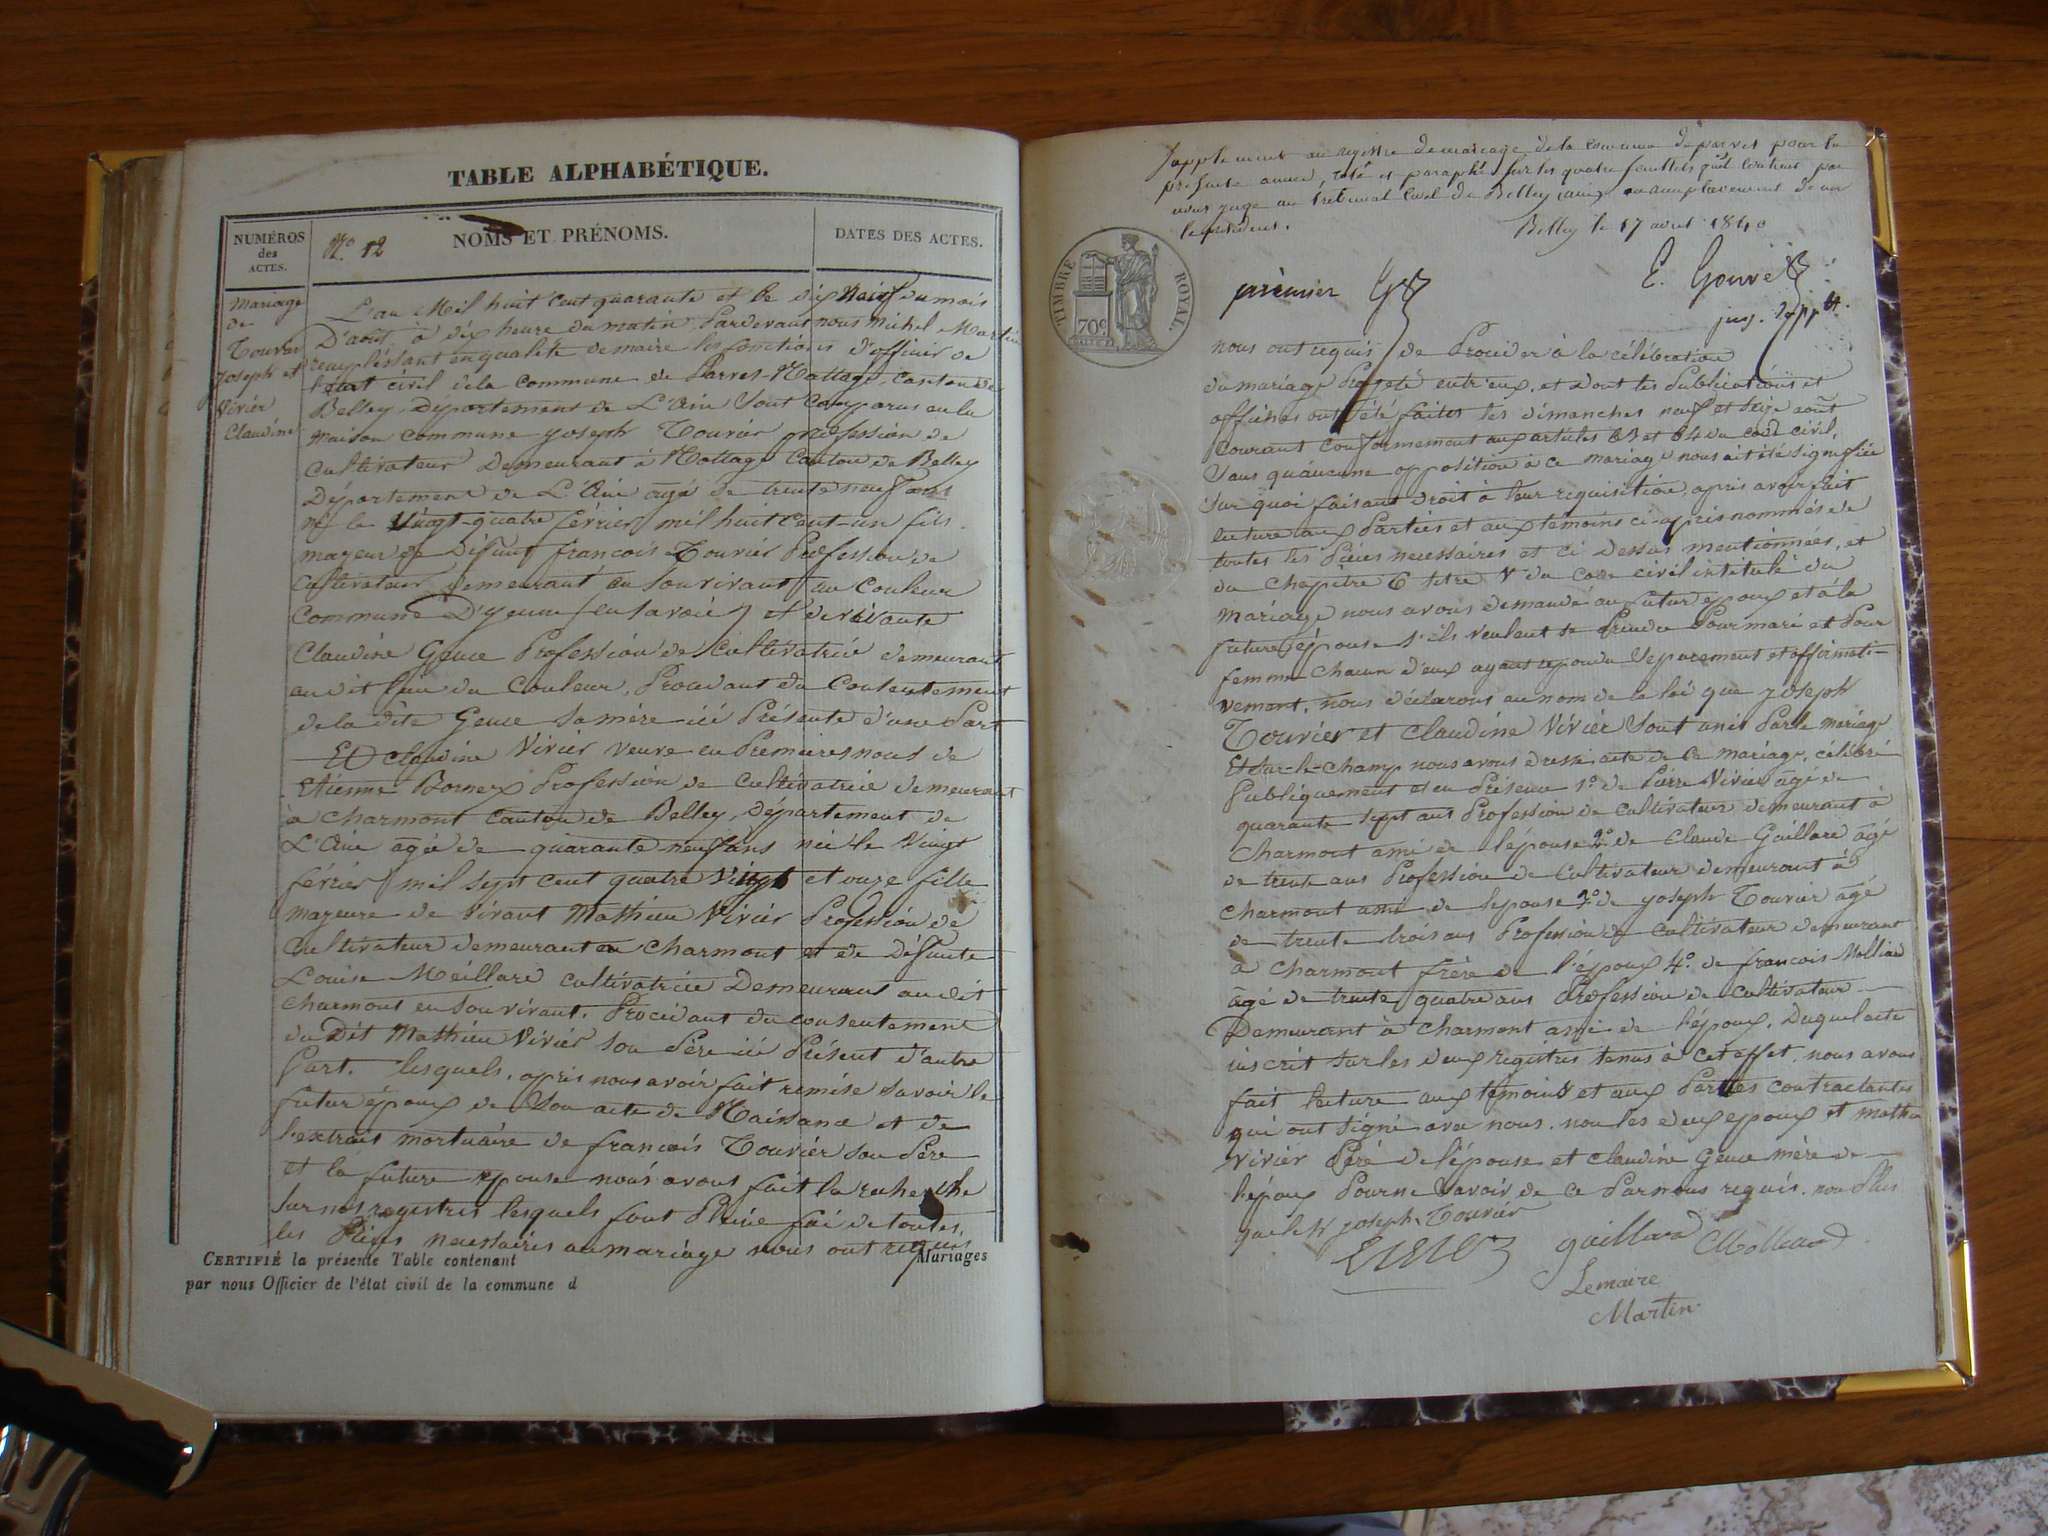 TABLE ALPHABÉTIQUE.
NUMÉROS
des
ACTES.
N.o 12
NOMS ET PRÉNOMS.
DATES DES ACTES.
Mariage
de
Touvier
Joseph et
Vivier
Claudine
L'an Mil huit cent quarante et le dix Neuf du mois
D'août à dix heure du matin Pardevant nous Michel Martin
remplissant en qualité de maire les fonctions d'officier de
l'état civil de la commune de Parves-Nattage, canton de
Belley Département de L'Ain Sont Comparus en la
maison commune joseph Touvier profession de
cultivateur Demeurant à Nattage Canton de Belley
Département de L'Ain agé de trente neuf ans
né le Vingt-quatre février mil huit cent-un fils
mageur de Défunt francois Touvier Profession de
cultivateur demeurant en Son vivant au Couleur
Commune D'yenne (en Savoie) et de vivante
Claudine Geuce Profession de cultivatrice demeurant
au dit lieu du Couleur, Procédant du Consentement
de la dite Geuce Sa mére ici Présente d'une Part
Et Claudine Vivier veuve en Premieres noces de
Etienne Bornex Profession de Cultivatrice demeurant
à Charmont Canton de Belley, Département de
L'Ain agée de quarante neuf ans née le Vingt
février mil sept cent quatre Vingt et onze fille
mageure de Vivant Mathieu Vivier Profession de
Cultivateur demeurant en Charmont et de Défunte
Louise Meillare cultivatrice Demeurant au dit
Charmont en Son vivant. Procédant du consentement
du Dit Mathieu Vivier Son Pére ici Présent d'autre
Part. lesquels, après nous avoir fait remise Savoir le
futur époux de Son acte de Naissance et de
l'extrait mortuaire de francois Touvier Son Pére
et la future epouse nous avons fait la recherche
Sur nos registres lesquels font Pleine foi de toutes
les Piéces necessaires au mariage nous ont requis
CERTIFIÉ la présente Table contenant
Mariages
par nous Officier de l'état civil de la commune d
Supplement au registre de mariage de la commune de parves pour la
presente annee, coté et paraphé sur les quatre feuillets qu'il contient par
nous juge au Tribunal Civil de Belley (ain) en remplacement de mr
le president.
Belley le 17 avril 1840
premier
E. Gouvé
TIMBRE ROYAL.
70c.
nous ont requis de Proceder à la célébration
du mariage Projeté entr'eux. et dont les Publications et
affiches ont été faites les dimanches neuf et Seize août
Courant conformement aux articles 63 et 64 du code civil.
Sans qu'aucune opposition à ce mariage nous ait été Signifiée
Sur quoi faisant droit à leur requisition, après avoir fait
lecture aux Parties et aux témoins ci-après nommés de
toutes les Piéces necessaires et ci dessus mentionnées, et
du Chapitre 6 titre V du code civil intitulé du
Mariage nous avons demandé au futur époux et à la
future épouse S'ils veulent Se Prendre Pour mari et Pour
femme Chacun d'eux ayant repondu Separement et affirmati-
vement, nous déclarons au nom de la loi que joseph
Touvier et Claudine Vivier Sont unis Par le mariage
Et Sur-le-champ nous avons dressé acte de ce mariage, célébré
Publiquement et en Présence 1.o de Pierre Vivier agé de
quarante Sept ans Profession de Cultivateur demeurant à
Charmont ami de l'épouse 2.o de Claude Gaillare agé
de trente ans Profession de Cultivateur demeurant à
Charmont ami de l'epouse 3.o de joseph Touvier agé
de trente trois ans Profession de cultivateur demeurant
à Charmont frére de l'époux 4.o de francois Molliard
agé de trente quatre ans Profession de Cultivateur
Demeurant à Charmont ami de l'époux. Duquel acte
inscrit Sur les deux registres tenus à cet effet, nous avons
fait lecture aux témoins et aux Parties contractantes
qui ont Signé avec nous. non les deux epoux et Mathieu
Vivier Pére de l'épouse et Claudine Geuce mére de
l'epoux Pour ne Savoir de ce Par nous requis. non Plus
que le Sr joseph. Touvier
gaillard
Molliard
Lemaire
Martin